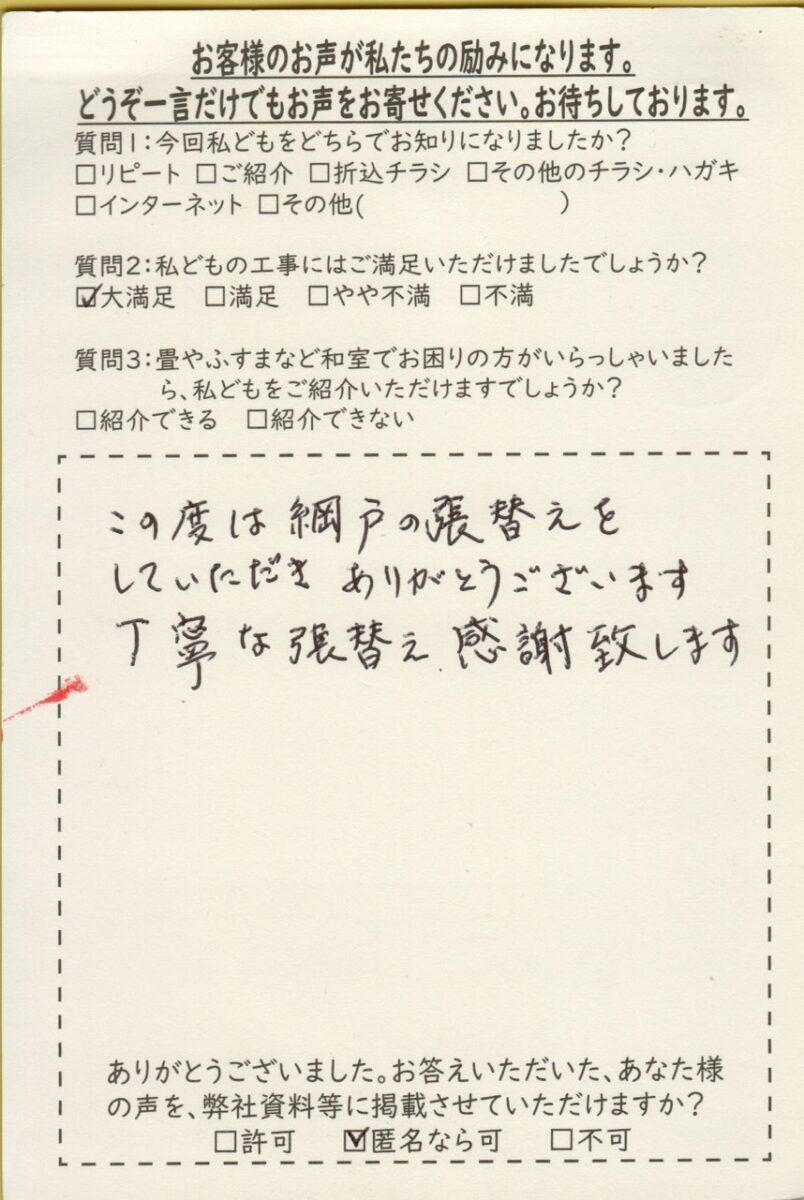 お客様のお声が私たちの励みになります。
どうぞ一言だけでもお声をお寄せください。お待ちしております。
質問1:今回私どもをどちらでお知りになりましたか?
□リピート □ご紹介 □折込チラシ □その他のチラシ・ハガキ
□インターネット □その他( )
質問2:私どもの工事にはご満足いただけましたでしょうか?
☑大満足 □満足 □やや不満 □不満
質問3:畳やふすまなど和室でお困りの方がいらっしゃいました
ら、私どもをご紹介いただけますでしょうか?
□紹介できる □紹介できない
この度は網戸の張替えを
していただき ありがとうございます
丁寧な張替え 感謝致します
ありがとうございました。お答えいただいた、あなた様
の声を、弊社資料等に掲載させていただけますか?
□許可 ☑匿名なら可 □不可